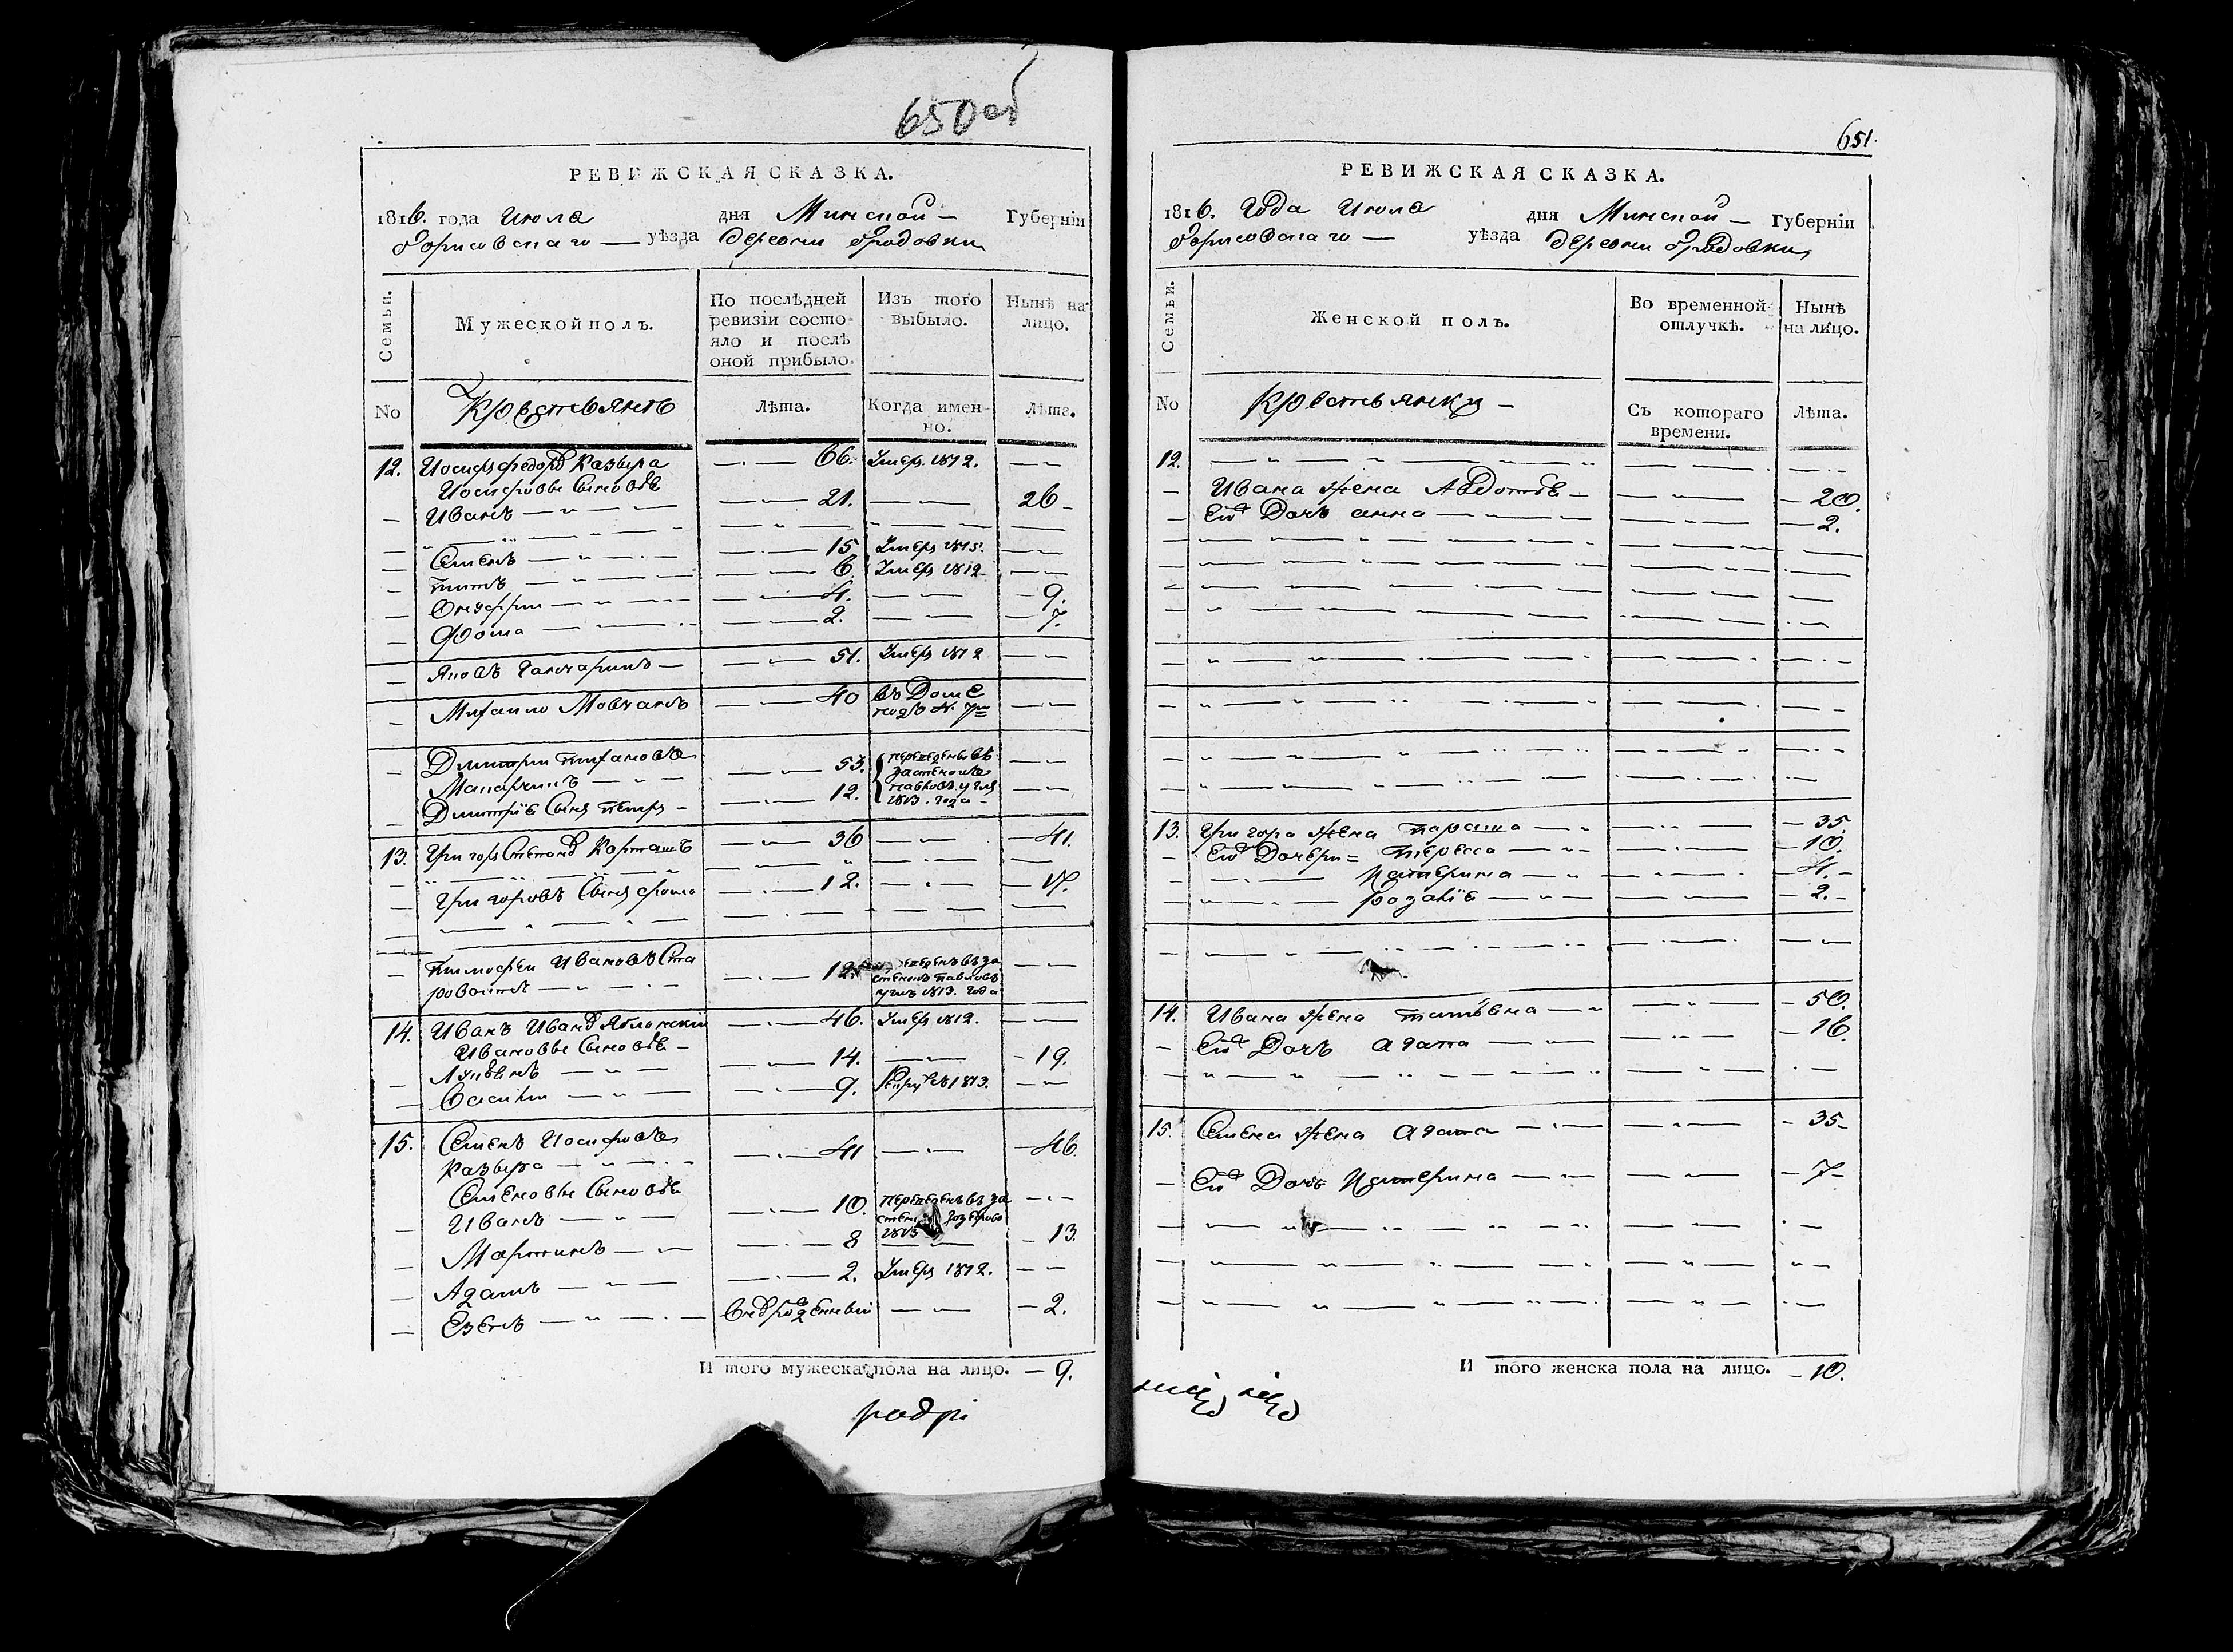 650об
РЕВИЖСКАЯ СКАЗКА.
1816. года Июля дня Минской — Губернiи
Борисовскаго — уѣзда деревни Бродовки
Семьи.
Мужеской полъ.
По послѣдней ревизiи состояло и послѣ оной прибыло.
Изъ того выбыло.
Нынѣ на лицо.
No
Крестьянъ
лѣта.
Когда именно.
лѣта.
12. Иосифъ Федоров Казыра — 66. Умеръ 1812. —
Иосифовы Сыновья
Иванъ — 21. — 26
Семенъ — 15 Умеръ 1815. —
Титъ — 6. Умеръ 1812 —
Онуфрiи — 4. — 9.
Фома — 2. — 7.
Яковъ Ганчаринъ — 51. Умеръ 1812 —
Михаило Мовчанъ — 40 въ Доме подъ N. 7м —
Дмитри Тихановъ — 53. переведены въ
Макаръ — застенокъ
Дмитрiя Сынъ Петръ — 12. 1813. года —
13. Григоръ Степанов Карташъ — 36 — 41.
Григоровъ Сынъ Фома — 12. — 17.
Тимофеи Ивановъ Ста — 12. переведенъ въ за
ровойтъ — стенокъ Павловъ
1813. года
14. Иванъ Иванов Яблонскiи — 46. Умеръ 1812. —
Ивановы Сыновья —
Лукьянъ — 14. — 19.
Васи́лiи — 9. Рекру въ 1813. —
15. Семенъ Иосифовъ
Казыра — 41 — 46.
Семеновы Сыновья
Иванъ — 10. переведенъ въ за
1813
Мартинъ — 8 — 13.
Адамъ — 2. Умеръ 1812. —
Езепъ — Вновьрожденныи — 2.
И того мужеска пола на лицо. — 9.
651.
РЕВИЖСКАЯ СКАЗКА.
1816. Года Июля дня Минской — Губернiи
Борисовскаго — уѣзда деревни Бродовки
Семьи.
Женской полъ.
Во временной отлучкѣ.
Нынѣ на лицо.
No
Крестьянки —
Съ котораго времени.
Лѣта.
12.
Ивана жена Авдотья — 20.
Ею Дочь Анна — 2.
13. Григора жена Параша — 35.
Ею Дочери = Тереса — 10.
Катерина — 4.
Розалiя — 2.
14. Ивана жена Татьяна — 50.
Ею Дочь Агата — 16.
15. Семена жена Агата — 35
Ею Дочь Катерина — 7
И того женска пола на лицо. — 10.